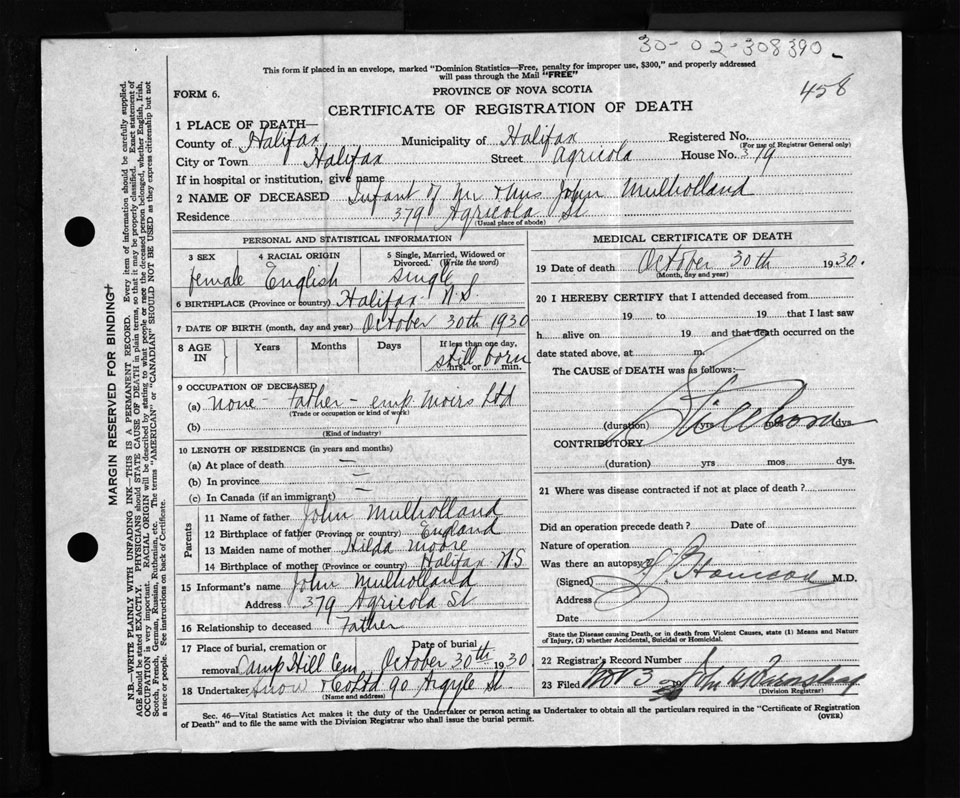 30-02-308390-
This form if placed in an envelope, marked "Dominion Statistics—Free, penalty for improper use, $300," and properly addressed
will pass through the Mail "FREE"
458
FORM 6.
PROVINCE OF NOVA SCOTIA
CERTIFICATE OF REGISTRATION OF DEATH
1 PLACE OF DEATH—
County of Halifax Municipality of Halifax Registered No.
(For use of Registrar General only)
City or Town Halifax Street Agricola House No. 379
If in hospital or institution, give name
2 NAME OF DECEASED Infant of Mr & Mrs John Mulholland
Residence 379 Agricola St
(Usual place of abode)
PERSONAL AND STATISTICAL INFORMATION
3 SEX 4 RACIAL ORIGIN 5 Single, Married, Widowed or
Divorced. (Write the word)
female English single
6 BIRTHPLACE (Province or country) Halifax N.S.
7 DATE OF BIRTH (month, day and year) October 30th 1930
8 AGE IN Years Months Days If less than one day,
still born
hrs. or min.
9 OCCUPATION OF DECEASED
(a) none - Father - emp. Moirs Ltd
(Trade or occupation or kind of work)
(b)
(Kind of industry)
10 LENGTH OF RESIDENCE (in years and months)
(a) At place of death —
(b) In province —
(c) In Canada (if an immigrant) —
Parents
11 Name of father John Mulholland
12 Birthplace of father (Province or country) England
13 Maiden name of mother Hilda Moore
14 Birthplace of mother (Province or country) Halifax NS
15 Informant's name John Mulholland
Address 379 Agricola St
16 Relationship to deceased Father
17 Place of burial, cremation or Date of burial
removal Camp Hill Cem. October 30th 1930
18 Undertaker Snow & Co Ltd 90 Argyle St.
(Name and address)
MEDICAL CERTIFICATE OF DEATH
19 Date of death October 30th 1930.
(Month, day and year)
20 I HEREBY CERTIFY that I attended deceased from
19 to 19 that I last saw
h alive on 19 and that death occurred on the
date stated above, at m.
The CAUSE of DEATH was as follows:—
Stillborn
(duration) yrs mos dys.
CONTRIBUTORY
(duration) yrs mos. dys.
21 Where was disease contracted if not at place of death?
Did an operation precede death? Date of
Nature of operation
Was there an autopsy
(Signed) M.D.
Address
Date
State the Disease causing Death, or in death from Violent Causes, state (1) Means and Nature
of Injury, (2) whether Accidental, Suicidal or Homicidal.
22 Registrar's Record Number
23 Filed Nov 3
(Division Registrar)
Sec. 46—Vital Statistics Act makes it the duty of the Undertaker or person acting as Undertaker to obtain all the particulars required in the "Certificate of Registration
of Death" and to file the same with the Division Registrar who shall issue the burial permit.
(OVER)
MARGIN RESERVED FOR BINDING
N.B.—WRITE PLAINLY WITH UNFADING INK—THIS IS A PERMANENT RECORD. Every item of information should be carefully supplied.
AGE should be stated EXACTLY. PHYSICIANS should STATE CAUSE OF DEATH in plain terms, so that it may be properly classified. Exact statement of
OCCUPATION is very important. RACIAL ORIGIN will be described by stating to what people or race the deceased person belonged, whether English, Irish,
Scotch, French, German, Russian, Ruthenian, etc. The terms "AMERICAN" or "CANADIAN" SHOULD NOT BE USED as they express citizenship but not
a race or people. See instructions on back of Certificate.